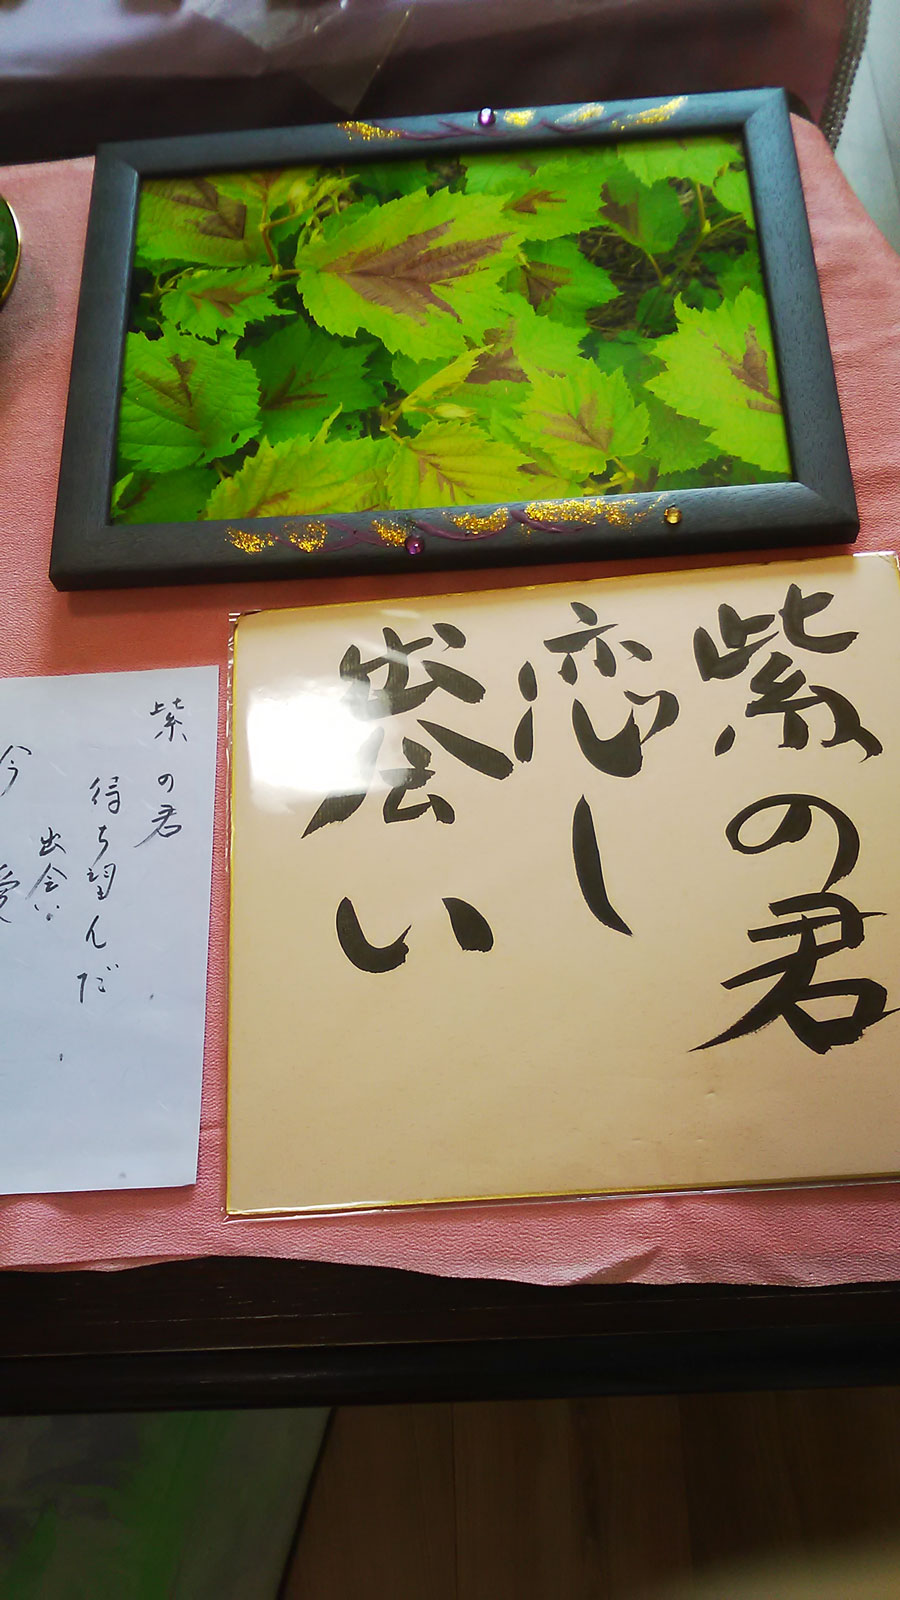 紫の君
恋し
出会い
紫の君
待ち望んだ
出会い
今
愛